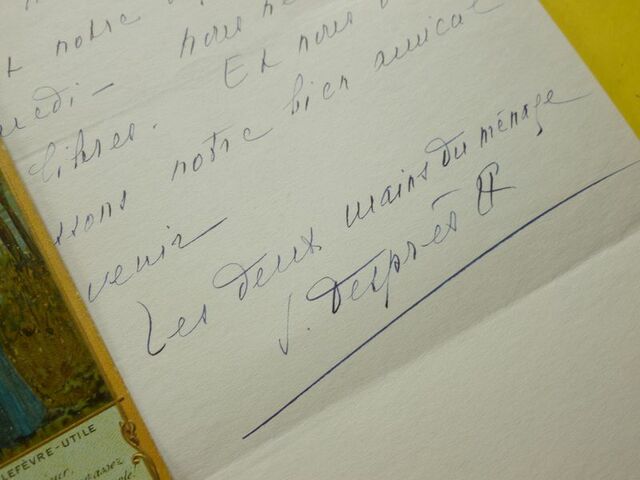 notre
nous
medi - Et nous
libres.
ssons notre bien amical
venir
Les deux mains du ménage
S. Desprès
LEFÈVRE-UTILE